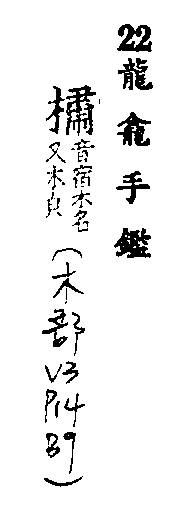 22龍龕手鑑
橚音宿木名又木皃(木部V3P1489)